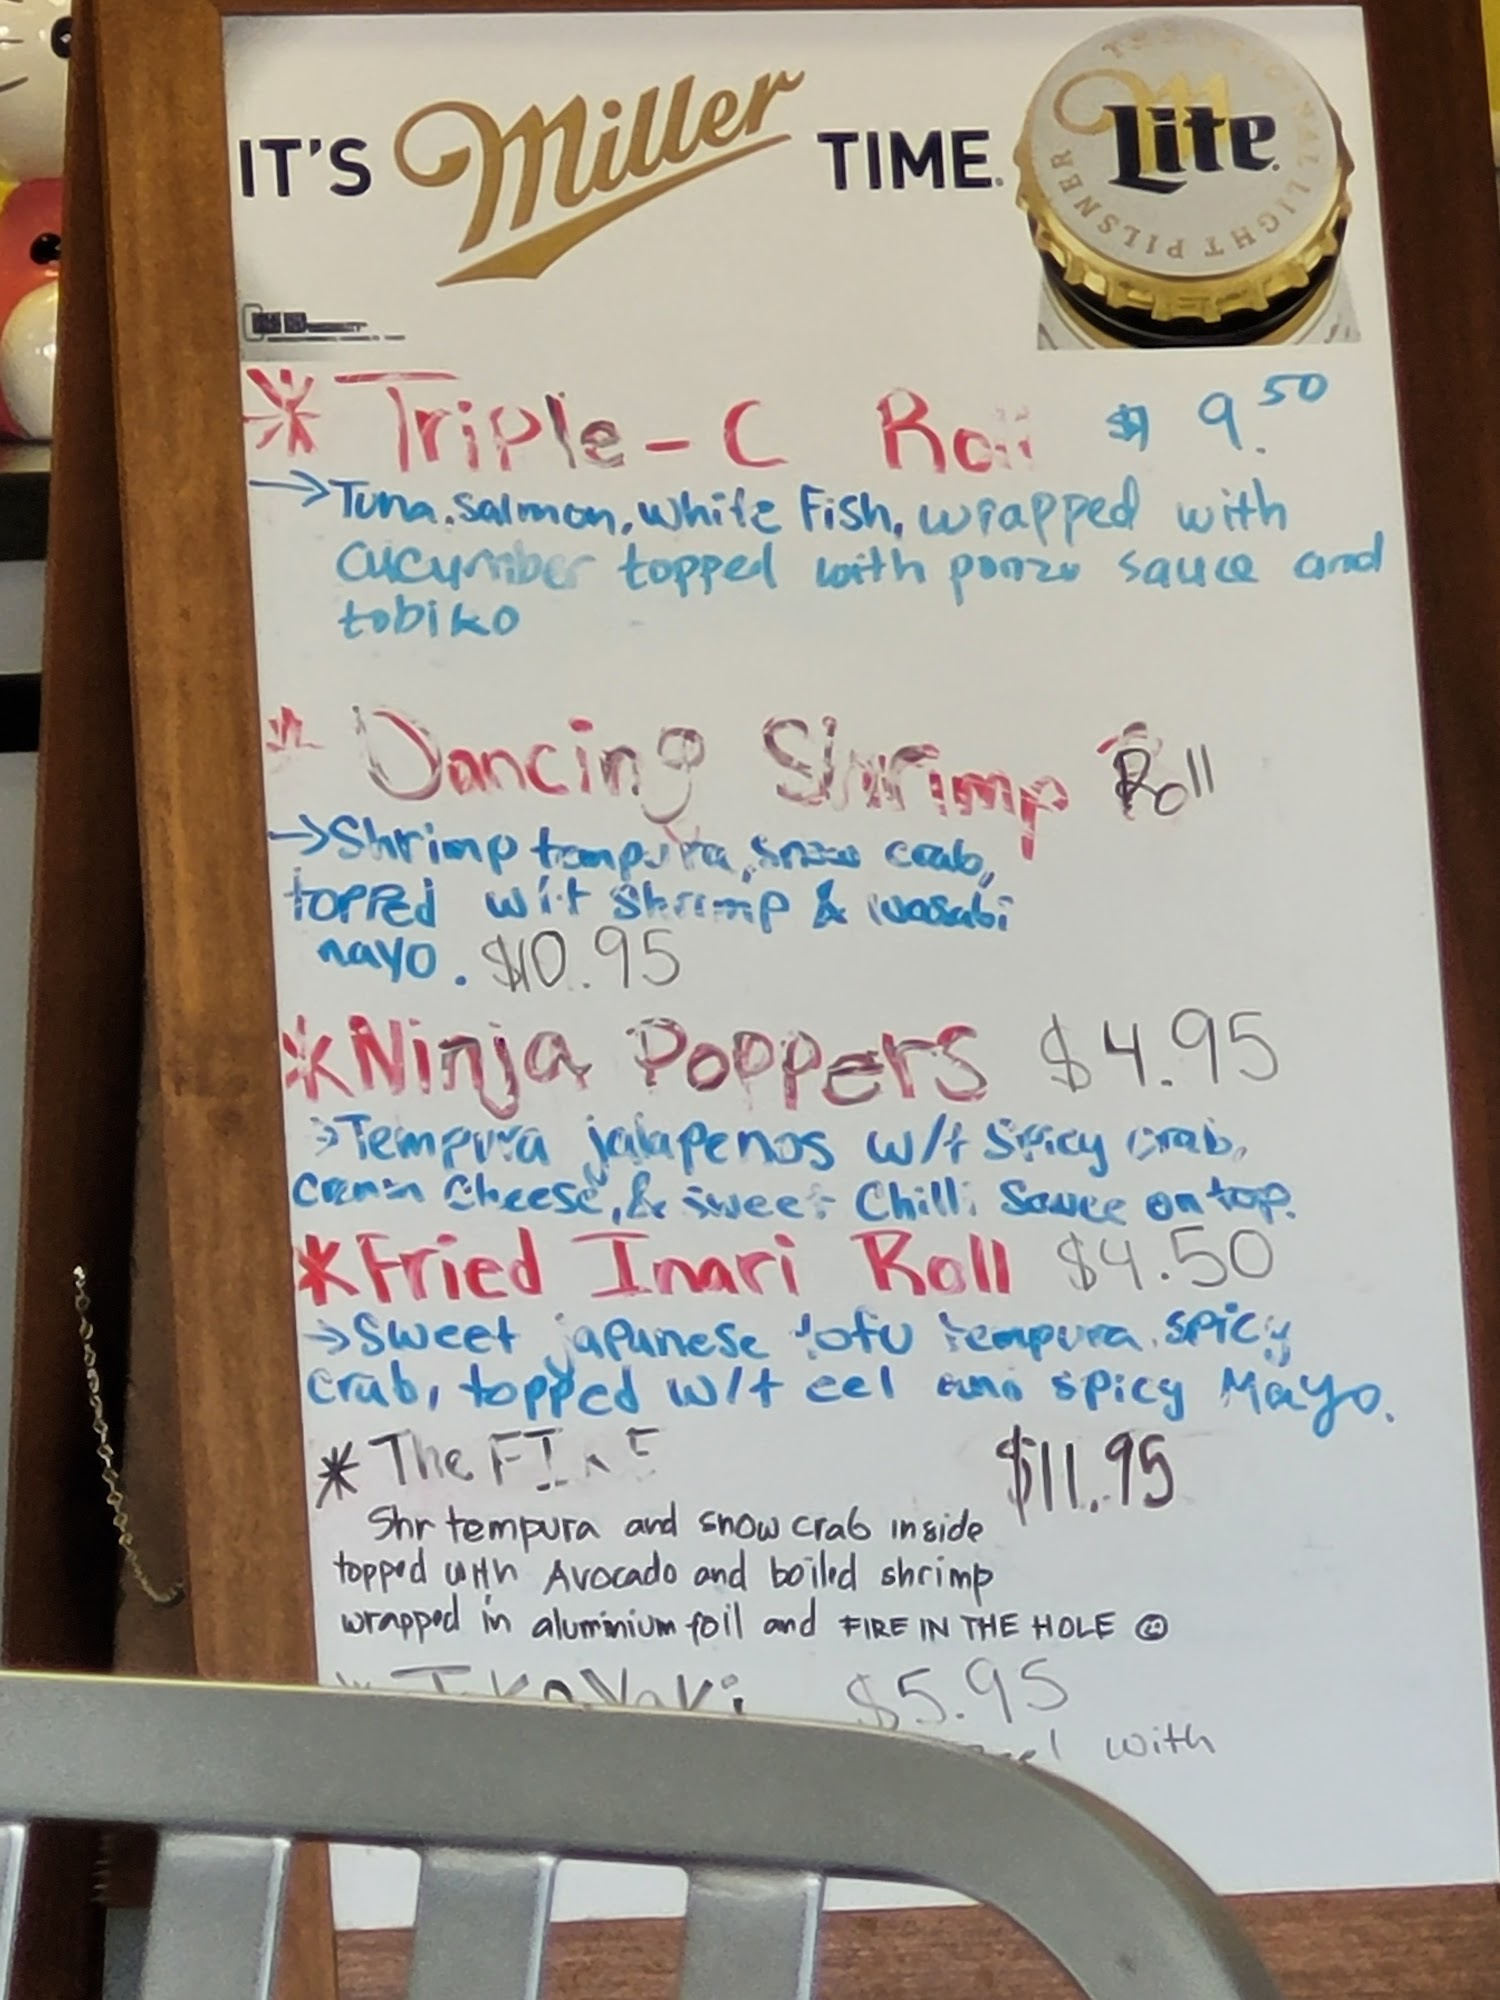 IT'S Miller TIME.
Lite
TRADITIONAL LIGHT PILSNER
* Triple-C Roll $9.50
→Tuna, salmon, white Fish, wrapped with
cucumber topped with ponzu sauce and
tobiko
* Dancing Shrimp Roll
→Shrimp tempura, snow crab,
topped w/t shrimp & wasabi
mayo. $10.95
*Ninja Poppers $4.95
→Tempura jalapenos w/t Spicy crab,
cream cheese, & sweet Chilli Sauce on top.
*Fried Inari Roll $4.50
→Sweet japanese tofu tempura, spicy
crab, topped w/t eel and spicy Mayo.
* The $11.95
Shr tempura and snow crab inside
topped with Avocado and boiled shrimp
wrapped in aluminium foil and FIRE IN THE HOLE
* $5.95
with